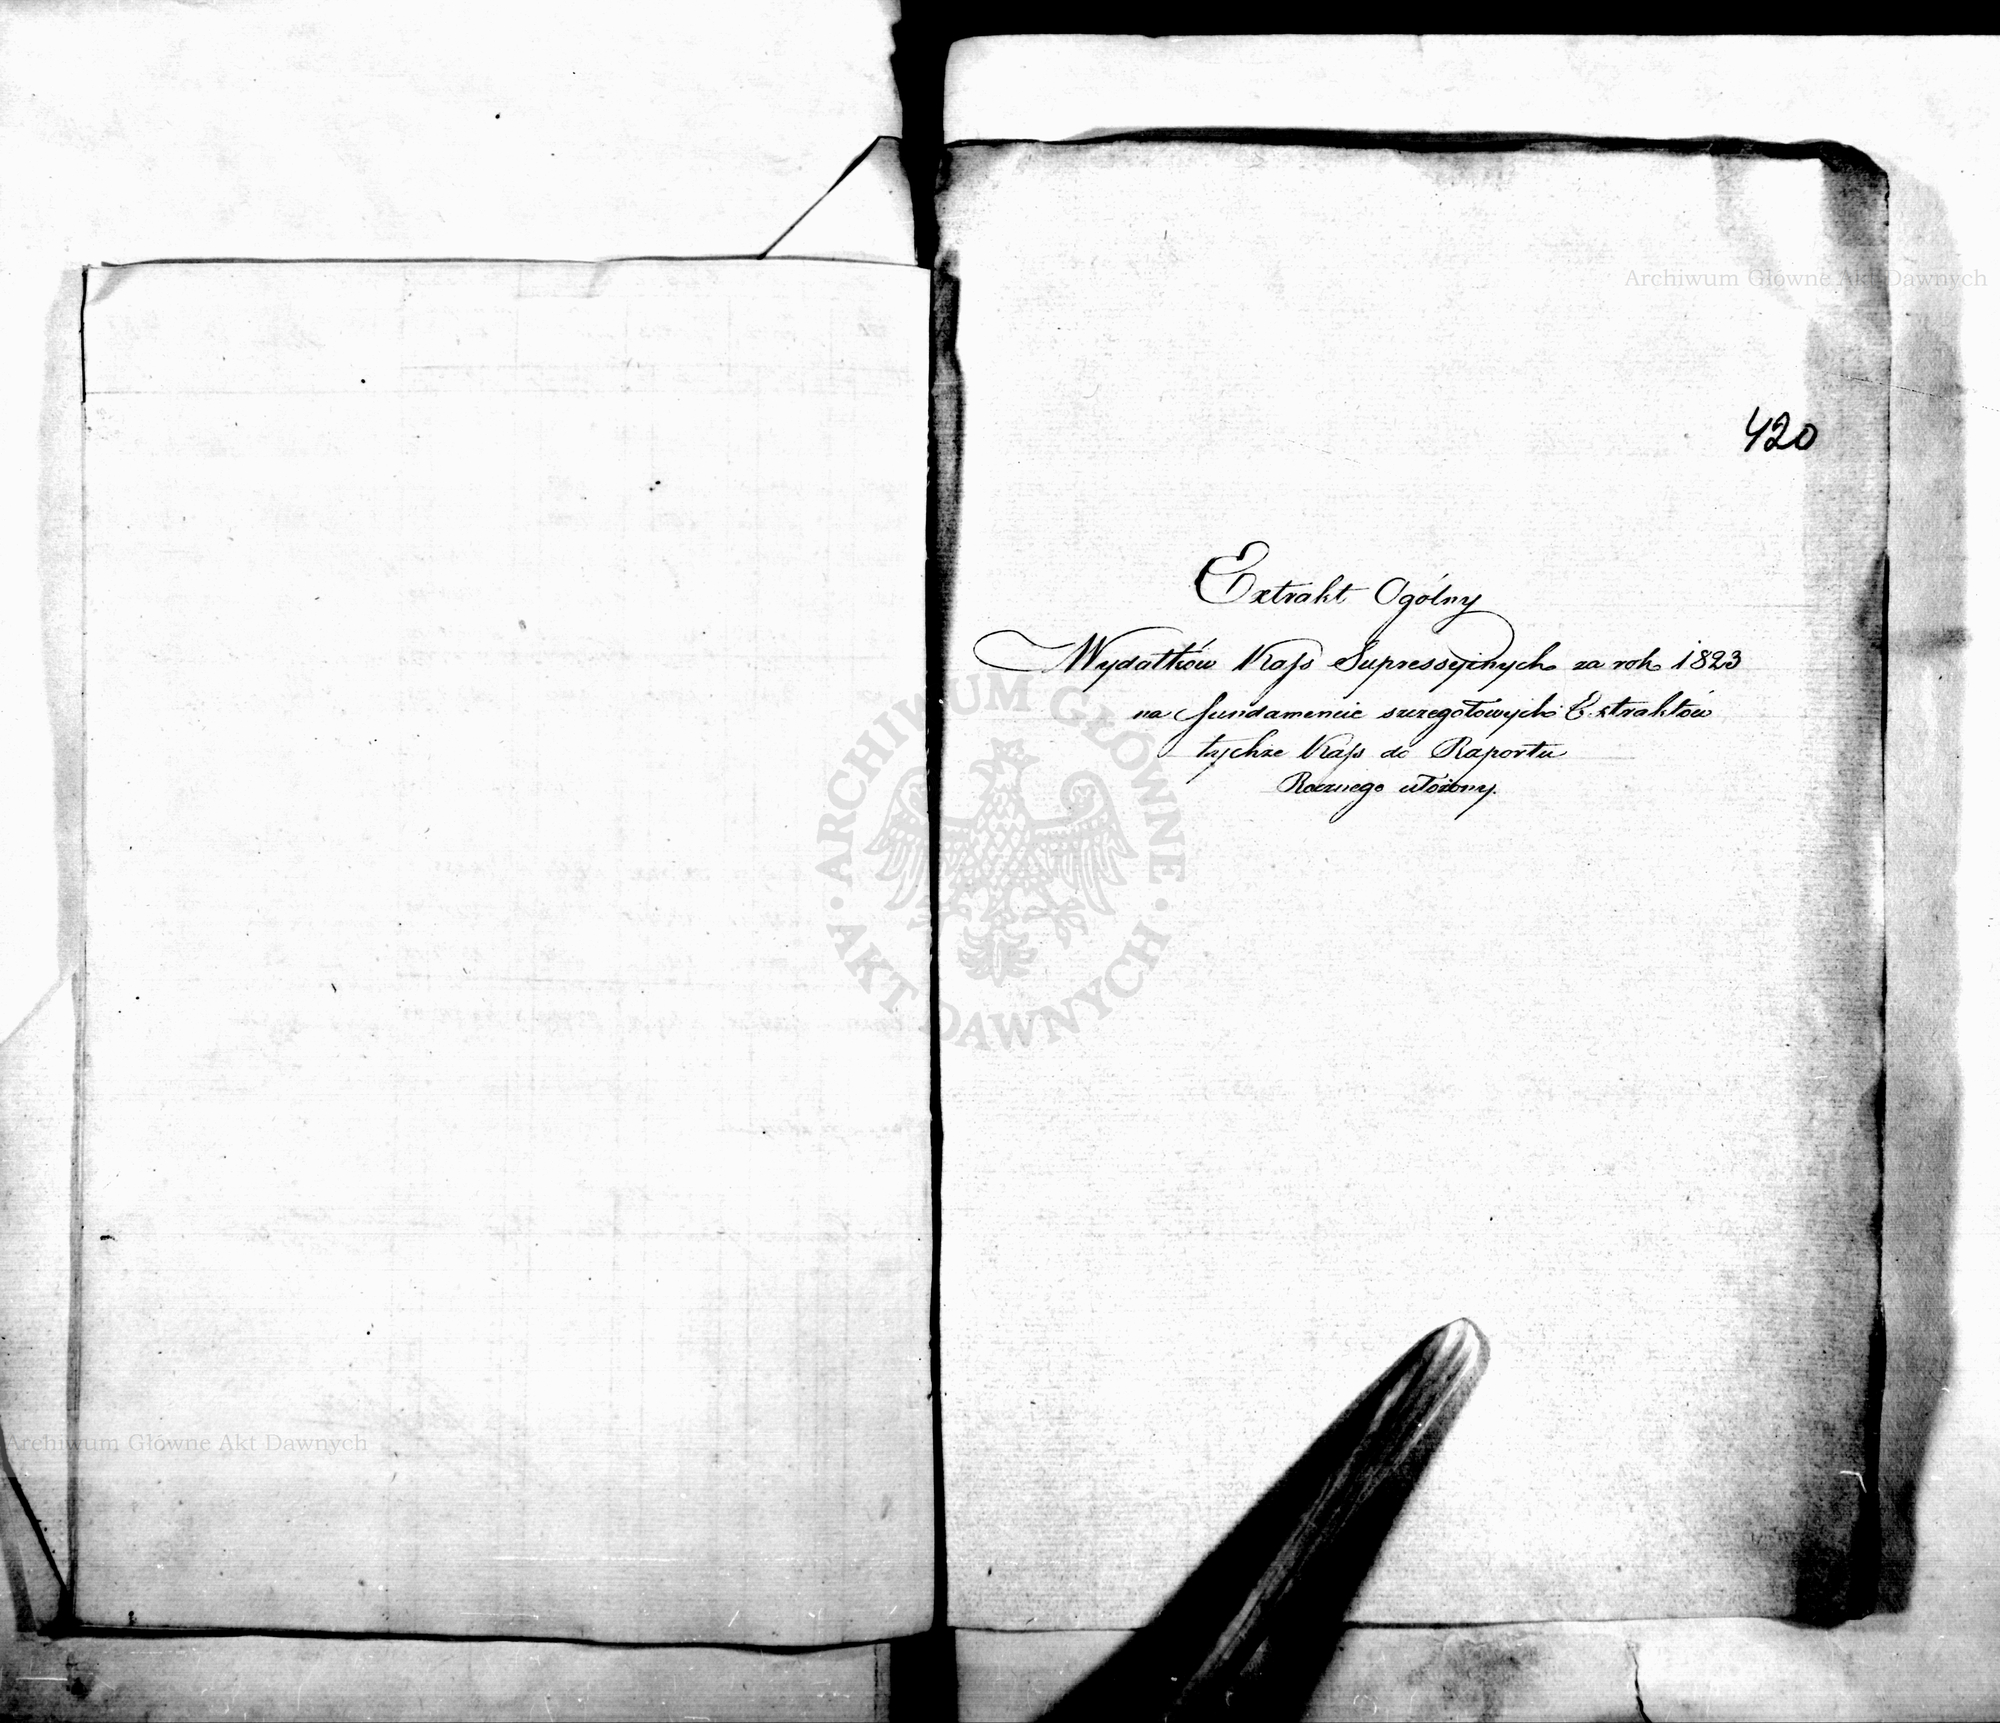 Archiwum Główne Akt Dawnych
420
Extrakt Ogólny
Wydatków Kass Supressyinych za rok 1823
na fundamencie szczegołowych Extraktów
tychże Kass do Raportu
Rocznego ułożony.
ARCHIWUM GŁÓWNE
AKT DAWNYCH
Archiwum Główne Akt Dawnych